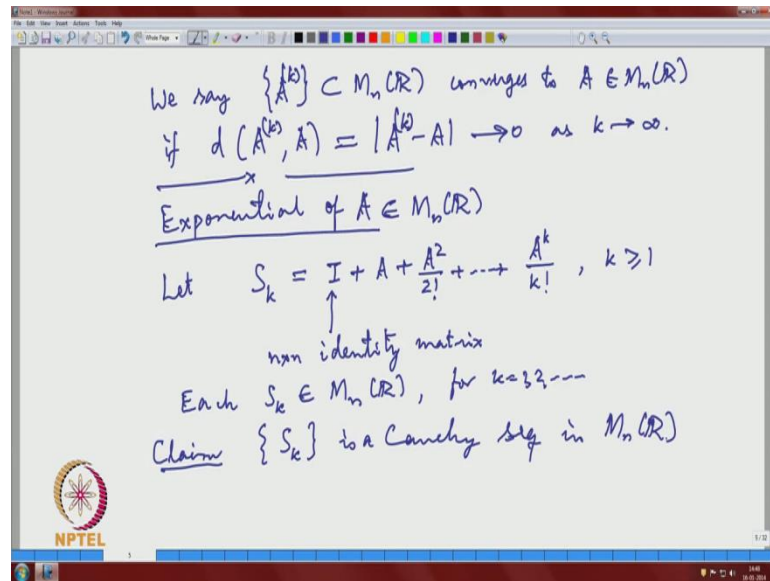 Note1 - Windows Journal
File Edit View Insert Actions Tools Help
Whole Page
We say {A^(k)} ⊂ M_n(ℝ) converges to A ∈ M_n(ℝ)
if d(A^(k), A) = |A^(k) - A| → 0 as k → ∞.
Exponential of A ∈ M_n(ℝ)
Let S_k = I + A + A^2/2! + ---- + A^k/k! , k ≥ 1
↑
n×n identity matrix
Each S_k ∈ M_n(ℝ), for k=1,2,----
Claim {S_k} is a Cauchy seq in M_n(ℝ)
NPTEL
5
5/32
14:48
16-01-2014